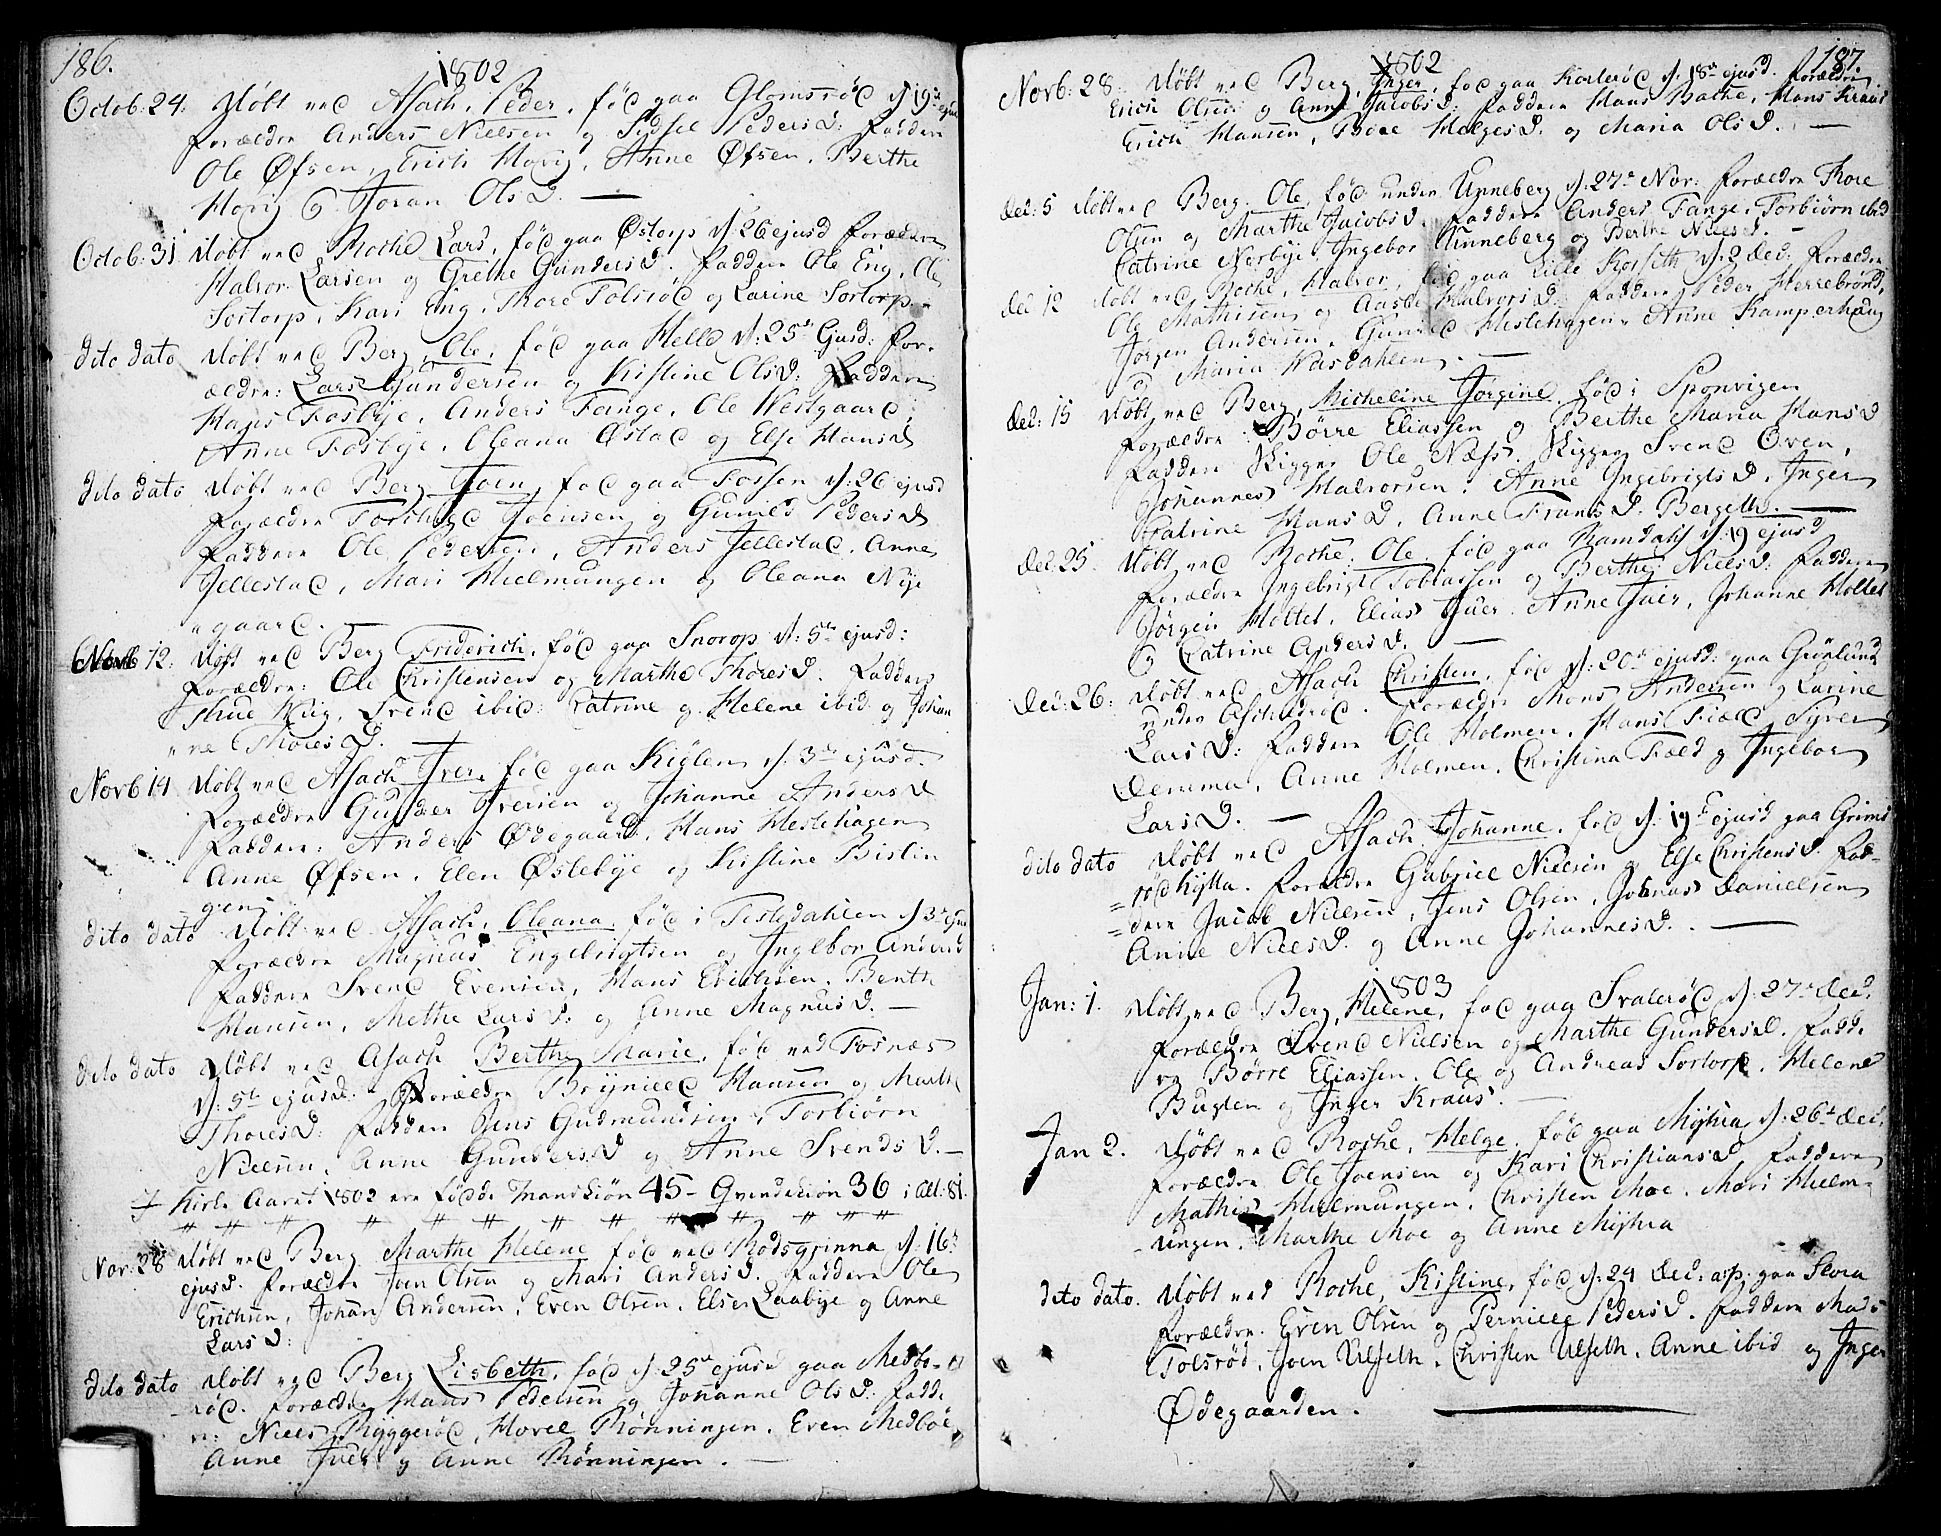 186.
1802
Octob: 24. Døbt ved Asach, Peder, fød paa Glomsrød d: 19de ejus
Forældre Anders Nielsen og Sidsel PedersD: Faddere
Ole Øfsen, Erich Hovig, Anne Øfsen, Berthe
Hovig & Joran OlsD.
Octob: 31. Døbt ved Rocke Lars, fød paa Østorp d: 26 ejusd Forældre
Halvor Larsen og Grethe GundersD. Faddere Ole Eng, Ole
Sortorp, Kari Eng, Thore Tolsrød og Larine Sortorp.
dito dato Døbt ved Berg, Ole, fød paa Helle d: 25de Ejusd: For-
ældre: Lars Gundersen og Kistine OlsD: Faddere
Hans Fosbye, Anders Tange, Ole Westgaard,
Anne Fosbye, Oleana Østad og Else HansD
dito dato Døbt ved Berg Joen, fød paa Fossen d: 26 ejusd
Forældre Joensen og Gunild PedersD
Faddere Ole Pedersen, Anders Jellestad, Anne
Jellestad, Mari Hielmungen og Oleana Nye
"gaard.
Novb 12. Døbt ved Berg Friderich, fød paa Snorop d: 5te ejusd:
Forældre: Ole Christensen og Marthe ThoresD. Faddere
Thue Wiig, Svend ibid: Catrine og Helene ibid og Johan
"ne ThoresD.
Novb 14 Døbt ved Asach Iver, fød paa Kiølen d: 3de ejusd.
Forældre Gunder Iversen og Johanne AndersD
Faddere: Anders Ødegaard, Hans Hestehagen
Anne Øfsen, Elen Østebye og Kistine Bistin
gen
dito dato Døbt ved Asach, Oleana, fød i Tistedahlen d 3de ejusd
Forældre Magnus Engebrigtsen og Ingebor AndersD
Faddere Svend Evensen, Hans Erichsen, Berth
Hansen, Methe LarsD: og Anne MagnusD.
dito dato Døbt ved Asach Berthe Marie, fød ved Tosnæs
d: 5te ejusd. Forældre Brynild Hansen og Marthe
ThoresD: Faddere Jens Gudmundsen, Torbiørn
Nielsen, Anne GundersD og Anne SvendsD.
I Kirke Aaret 1802 ere fødde Mandkiøn 45 - Qvindekiøn 36 i Alt: 81.
Nov: 28 Døbt ved Berg Marthe Helene fød ved Rødsgrinna d: 16de
ejusd. Forældre Joen Olsen og Mari AndersD. Faddere Ole
Erichsen, Johan Andersen, Even Olsen, Else Laabye og Anne
LarsD:
dito dato Døbt ved Berg Lisbeth, fød d: 25de ejusd paa Medbø-
rød. Forældre Hans Pedersen og Johanne OlsD: Fadde
re: Niels Ryggerød, Hovel Rønningen, Even Medbøe,
Anne Juer og Anne Rønningen.
187.
1802
Novb: 28. Døbt ved Berg, Inger, fød paa Kocherød d. 18de ejusd. Forældre
Erich Olsen og Anne JacobsD: Faddere Hans Bache, Hans Kraus
Erich Hansen, Boel HelgesD. og Maria OlsD.
Dec: 5 Døbt ved Berg, Ole, fød under Unneberg d: 27de Nov: Forældre Thore
Olsen og Marthe JacobsD. Faddere Anders Tange, Torbiørn ibid
Catrine Norbye, Ingebor Unneberg og Berthe NielsD.
Dec 12 Døbt ved Rocke, Halvor, fød paa Lille Korseth d: 2 Dec: Forældre
Ole Mathisen og Aase HalvorsD. Faddere Peder Herrebrønd,
Jørgen Andersen, Gunild Hestehagen, Anne Kamperhaug
og Maria Wasdahlen.
Dec: 15 Døbt ved Berg, Micheline Jørgine, fød i Sponvigen
Forældre Børre Eliassen og Berthe Maria HansD
Faddere Rigger Ole Næss, Rigger Svend Oven,
Johannes Halvorsen, Anne IngebrigtsD, Inger
Catrine HansD, Anne FransD. Bergeth.
Dec: 25. Døbt ved Rocke, Ole, fød paa Ramdahl d: 19 ejusd
Forældre Ingebrigt Tobiassen og Berthe NielsD: Faddere
Jørgen Holtet, Elias Juer, Anne Juer, Johanne Holtet
& Catrine AndersD.
Dec: 26: Døbt ved Asach Christen, fød d: 20de ejusd: paa Grønlund
under Aschedød. Forældre Mons Andersen og Larine
LarsD: Faddere Ole Holmen, Hans Field, Syver
Demma, Anne Holmen, Christina Fæld og Ingebor
LarsD.
dito dato Døbt ved Asach Johanne, fød d: 19de ejusd paa Grims
=rød hytta. Forældre Gabriel Nielsen og Else ChristensD. Fad-
=dere Jacob Nielsen, Jens Olsen, Johnas Danielsen
Anne NielsD. og Anne JohannesD.
1803
Jan: 1. Døbt ved Berg, Helene, fød paa Svalerød d: 27de Dec.
Forældre Svend Nielsen og Marthe GundersD. Fadde
re Børre Eliassen, Ole og Andreas Sortorp, Helene
Buglen og Inger Kraus.
Jan 2. Døbt ved Rocke, Helge, fød paa Myhra d: 26de Dec.
Forældre Ole Joensen og Kari ChristiansD Faddere
Mathis Hielmungen, Christen Moe, Mari Hielm-
ungen, Marthe Moe og Anne Myhra
dito dato. Døbt ved Rocke, Kistine, fød d: 24 Dec: a:p: paa Skora
Forældre. Even Olsen og Pernille PedersD. Faddere Mads
Tolsrød, Joen Ulseth, Christen Ulseth, Anne ibid og Inger
Ødegaarden.